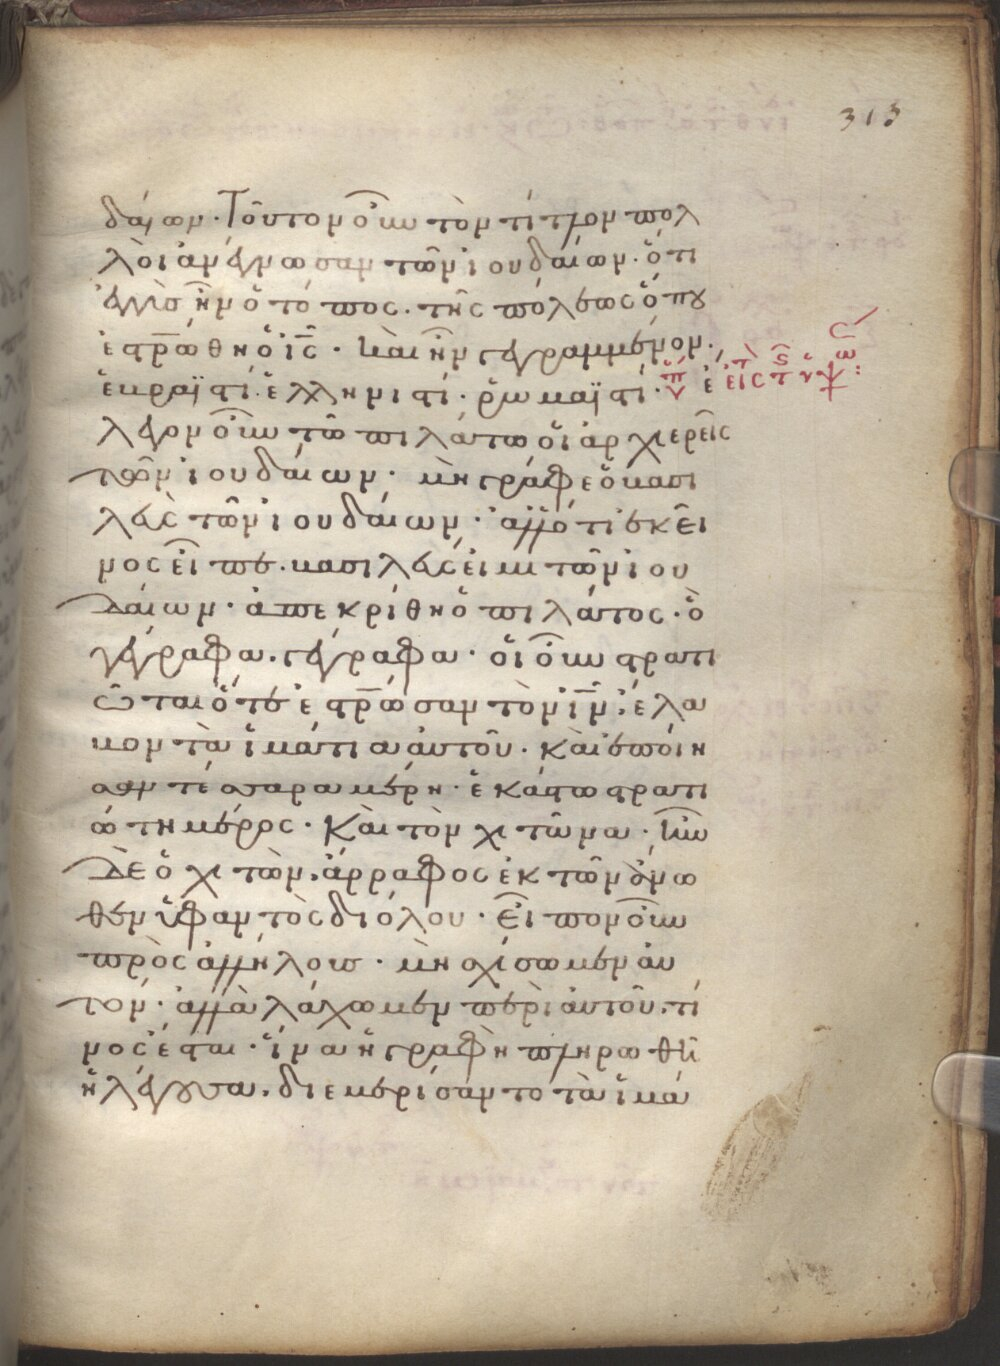 313
δαίων· Τοῦτον οὖν τὸν τίτλον πολ
λοὶ ἀνέγνωσαν τῶν ἰουδαίων· ὅτι
ἐγγὺς ἦν ὁ τόπος· τῆς πόλεως ὅπου
ἐστρώθη ὁ ἰς· καὶ ἦν γεγραμμένον·
ἑβραϊστί· ἑλληνιστί· ῥωμαϊστί·
λέγον οὖν τῶ πιλάτω οἱ ἀρχιερεῖς
τῶν ἰουδαίων· μὴ γράφε ὁ βασι
λεὺς τῶν ἰουδαίων· ἀλλ' ὅτι ἐκεῖ
νος εἶπε· βασιλεύς εἰμι τῶν ἰου
δαίων· ἀπεκρίθη ὁ πιλάτος· ὃ
γέγραφα· γέγραφα· οἱ οὖν στρατι
ῶται ὅτε ἐστρωσαν τὸν ἰν· ἔλα
βον τὰ ἱμάτια αὐτοῦ· καὶ ἐποίη
σαν τέσσαρα μέρη· ἑκάστω στρατι
ώτη μέρος· Καὶ τὸν χιτῶνα· ἦν
δὲ ὁ χιτὼν ἄρραφος ἐκ τῶν ἄνω
θεν ὑφαντὸς διόλου· Εἶπον οὖν
πρὸς ἀλλήλους· μὴ σχίσωμεν αὐ
τόν· ἀλλὰ λάχωμεν περὶ αὐτοῦ· τί
νος ἔσται· ἵνα ἡ γραφὴ πληρωθῆ
ἡ λέγουσα· διεμερίσαντο τὰ ἱμά